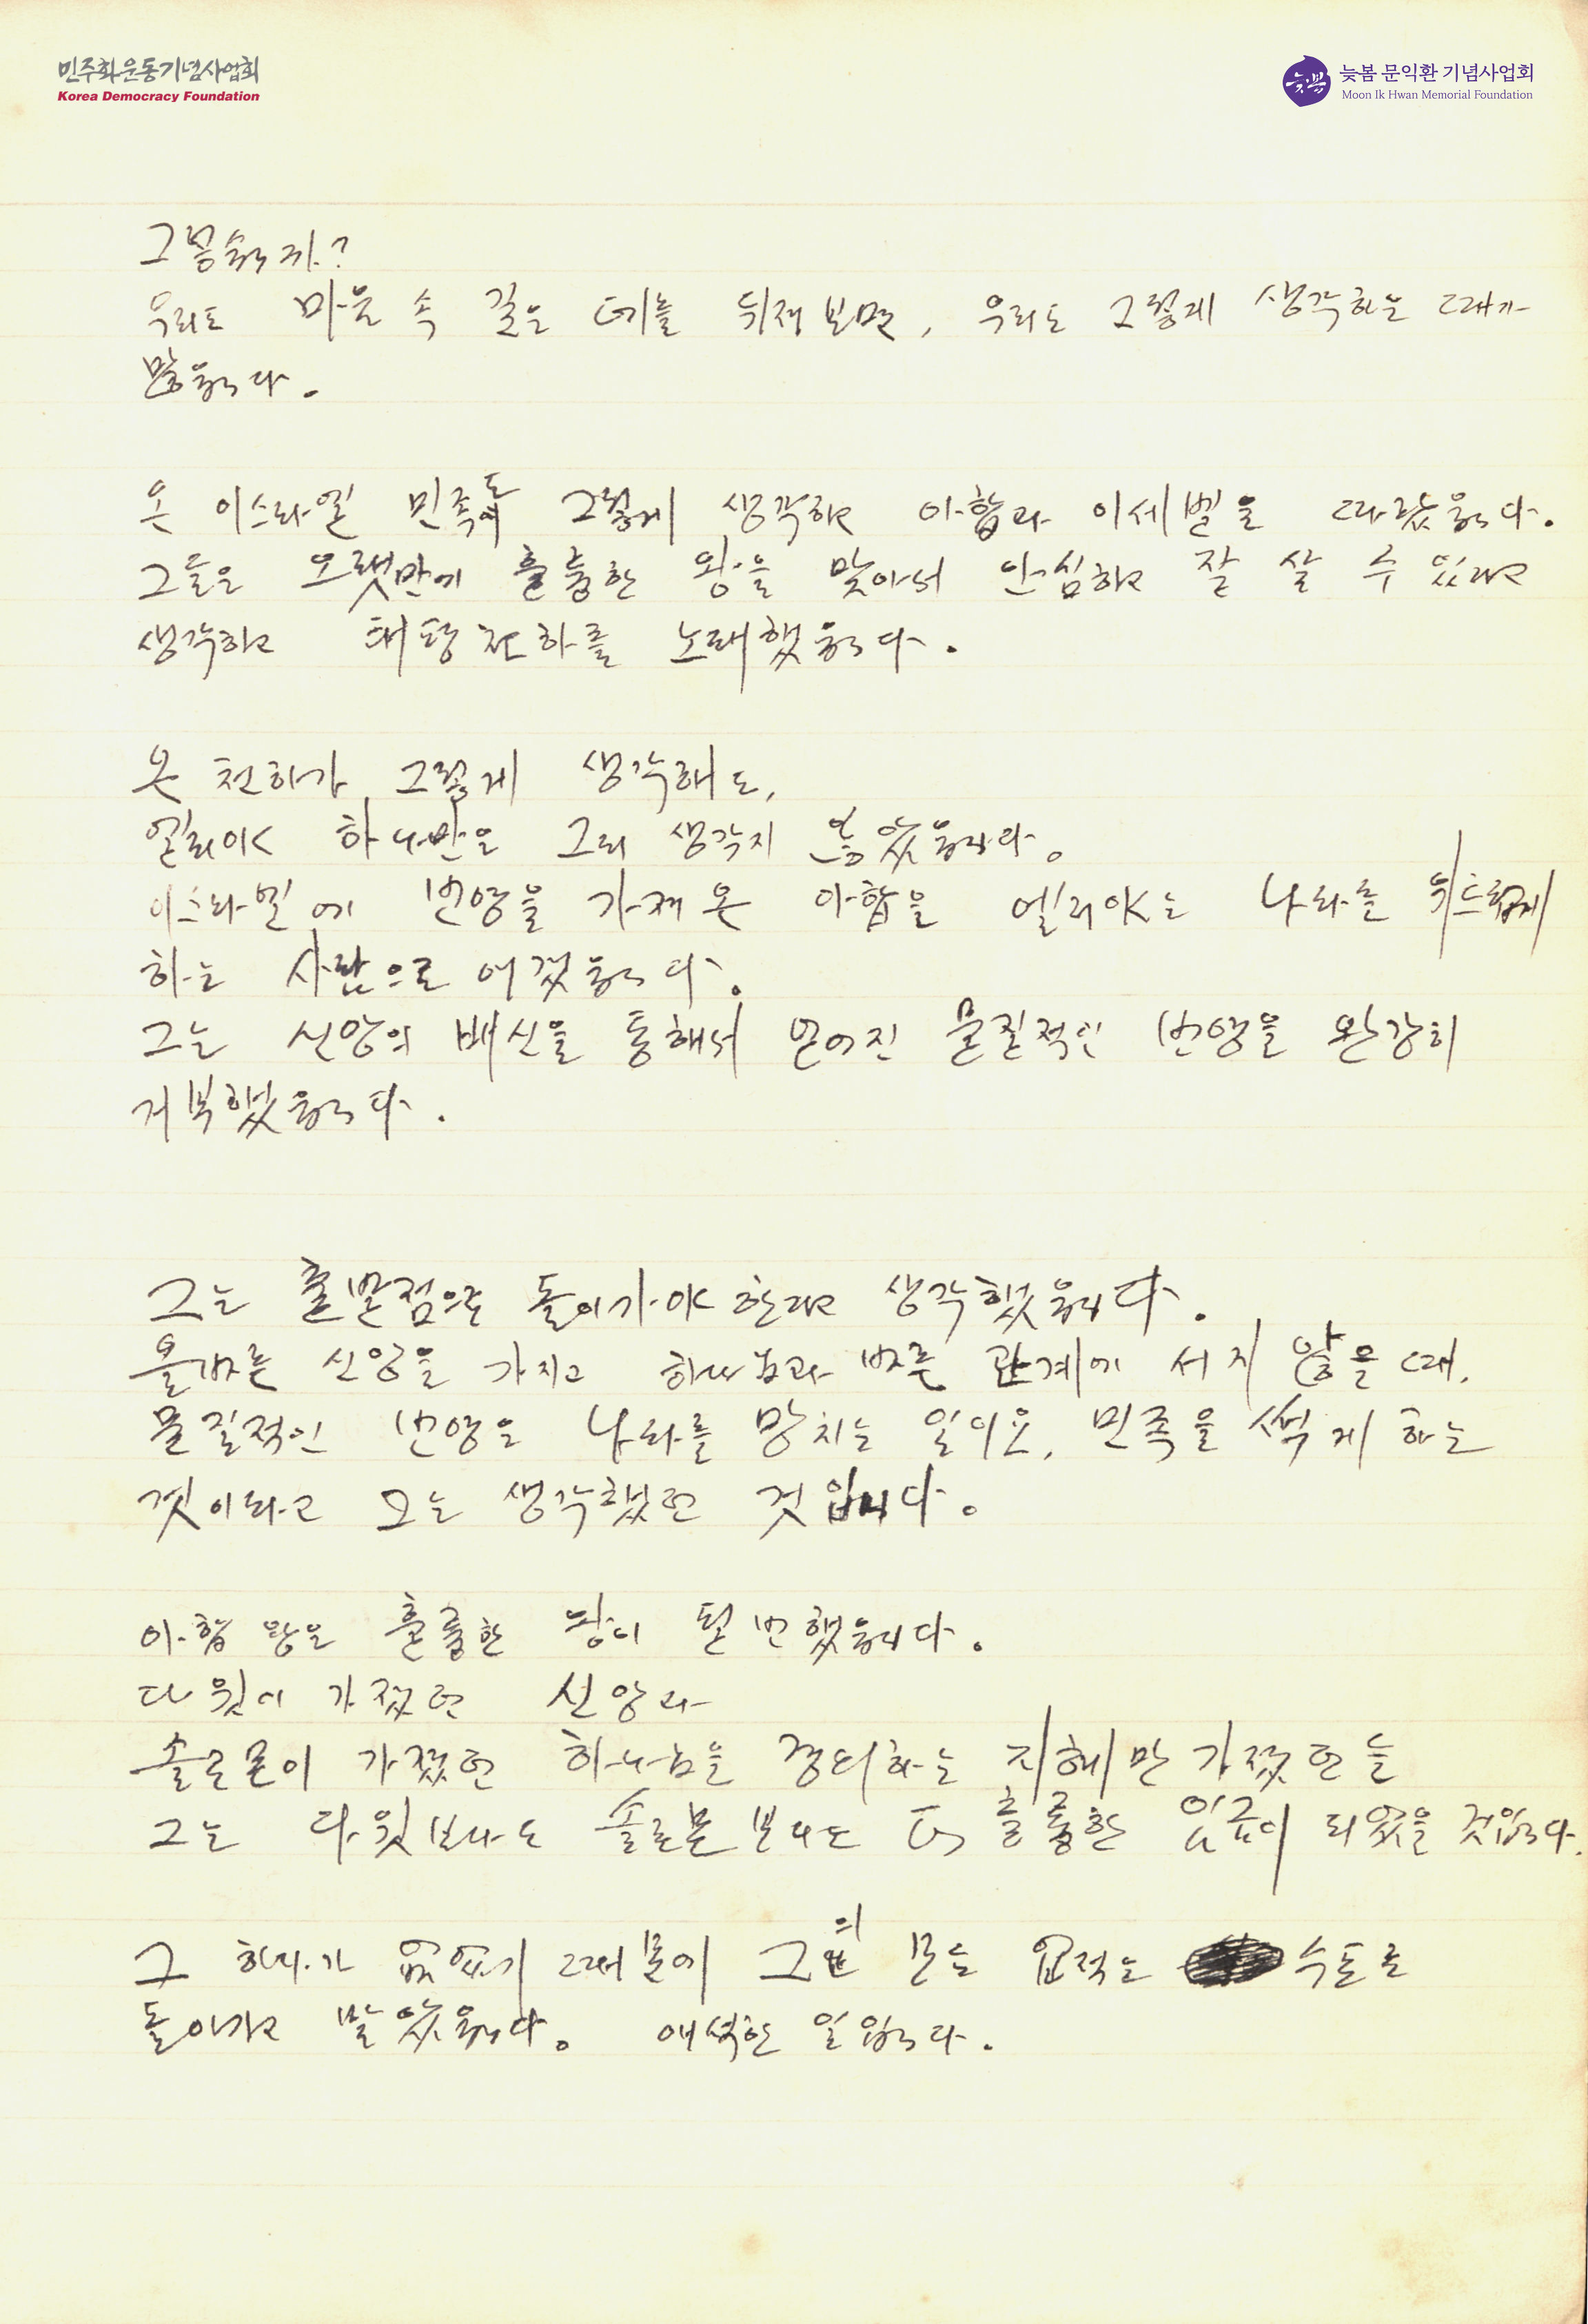 민주화운동기념사업회
Korea Democracy Foundation
늦봄
늦봄 문익환 기념사업회
Moon Ik Hwan Memorial Foundation
그렇습니까?
우리도 마음 속 깊은 데를 뒤져 보면, 우리도 그렇게 생각하는 때가
많습니다.
온 이스라엘 민족도 그렇게 생각하고 아합과 이세벨을 따랐읍니다.
그들은 오랫만에 훌륭한 왕을 맞아서 안심하고 잘 살 수 있다고
생각하고 태평천하를 노래했읍니다.
온 천하가 그렇게 생각해도,
엘리야 하나만은 그리 생각지 않았읍니다.
이스라엘에 번영을 가져온 아합을 엘리야는 나라를
하는 사람으로 여겼읍니다.
그는 신앙의 배신을 통해서 얻어진 물질적인 번영을 완강히
거부했읍니다.
그는 출발점으로 돌아가야 한다고 생각했읍니다.
올바른 신앙을 가지고 하나님과 바른 관계에 서지 않을 때,
물질적인 번영은 나라를 망치는 일이요, 민족을 썩게 하는
것이라고 그는 생각했던 것입니다.
아합 왕은 훌륭한 왕이 될 번했읍니다.
다윗이 가졌던 신앙과
솔로몬이 가졌던 하나님을 경외하는 지혜만 가졌던들
그는 다윗보다도 솔로몬보다도 더 훌륭한 임금이 되었을 것입니다.
그 하나가 없었기 때문에 그의 모든 업적은 수포로
돌아가고 말았읍니다. 애석한 일입니다.